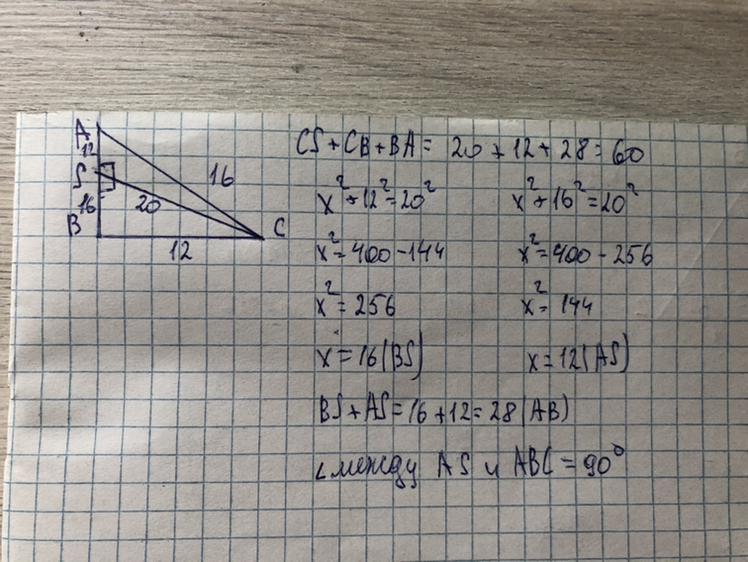 A
12
S
16
16
20
B
C
12
CS + CB + BA = 20 + 12 + 28 = 60
x² + 12² = 20²
x² + 16² = 20²
x² = 400 - 144
x² = 400 - 256
x² = 256
x² = 144
x = 16 (BS)
x = 12 (AS)
BS + AS = 16 + 12 = 28 (AB)
∠ между AS и ABC = 90°